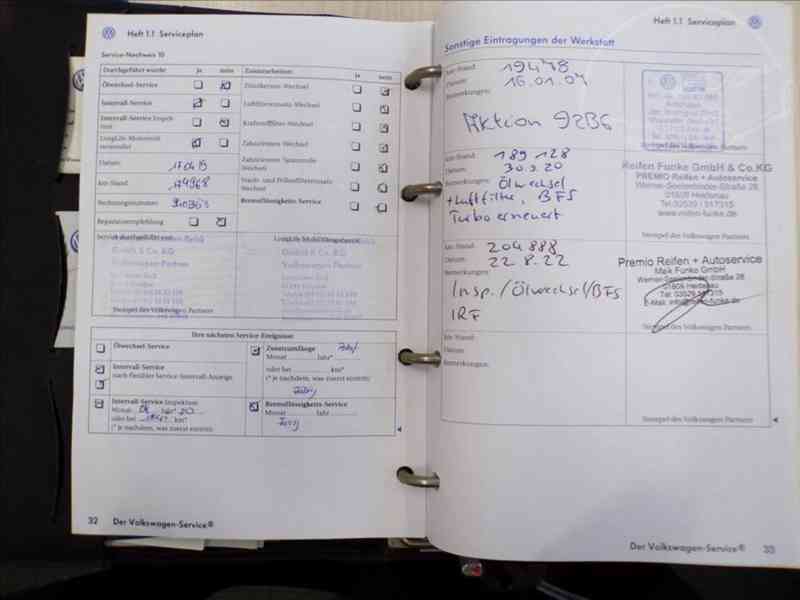 Heft 1.1 Serviceplan
Service-Nachweis 10
Durchgeführt wurde ja nein
Ölwechsel-Service
Intervall-Service
Intervall-Service Inspektion
LongLife Motorenöl verwendet
Datum:
km-Stand: 174968
Rechnungsnummer:
Reparaturempfehlung
Zusatzarbeiten: ja nein
Zündkerzen Wechsel
Luftfiltereinsatz Wechsel
Kraftstofffilter Wechsel
Zahnriemen Wechsel
Zahnriemen Spannrolle Wechsel
Staub- und Pollenfiltereinsatz Wechsel
Bremsflüssigkeits-Service
Service durchgeführt
LongLife Mobilitätsgarantie
GmbH & Co. KG
Volkswagen Partner
Stempel des Volkswagen Partners
Stempel des Volkswagen Partners
Ihre nächsten Service Ereignisse
Ölwechsel Service
Intervall-Service
nach flexibler Service-Intervall-Anzeige
Intervall-Service Inspektion
Monat Jahr 20
oder bei km*
(* je nachdem, was zuerst eintritt)
Zusatzumfänge
Monat Jahr*
oder bei km*
(* je nachdem, was zuerst eintritt)
Bremsflüssigkeits-Service
Monat Jahr
32 Der Volkswagen-Service®
Heft 1.1 Serviceplan
Sonstige Eintragungen der Werkstatt
km-Stand: 19478
Datum: 16.01.07
Bemerkungen:
Aktion 92B6
Stempel des Volkswagen Partners
km-Stand: 189 128
Datum: 30.9.20
Bemerkungen: Ölwechsel
+Luftfilter, BFS
Turbo erneuert
Reifen Funke GmbH & Co.KG
PREMIO Reifen + Autoservice
Werner-Seelenbinder-Straße 28
01809 Heidenau
Tel.03529 / 517315
www.reifen-funke.de
Stempel des Volkswagen Partners
km-Stand: 204888
Datum: 22.8.22
Bemerkungen:
Insp./Ölwechsel/BFS
IRF
Premio Reifen + Autoservice
Maik Funke GmbH
Werner-Seelenbinder-Straße 28
01809 Heidenau
Stempel des Volkswagen Partners
km-Stand:
Datum:
Bemerkungen:
Stempel des Volkswagen Partners
Der Volkswagen-Service® 33